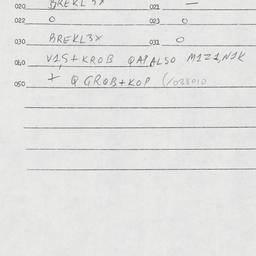 020 BREKL3X 021 —
022 O 023 O
030 BREKL3X 031 O
040 V1,5+KROB QAPALSO M1Z1,N1K
050 + QGROB+KOP (/028010